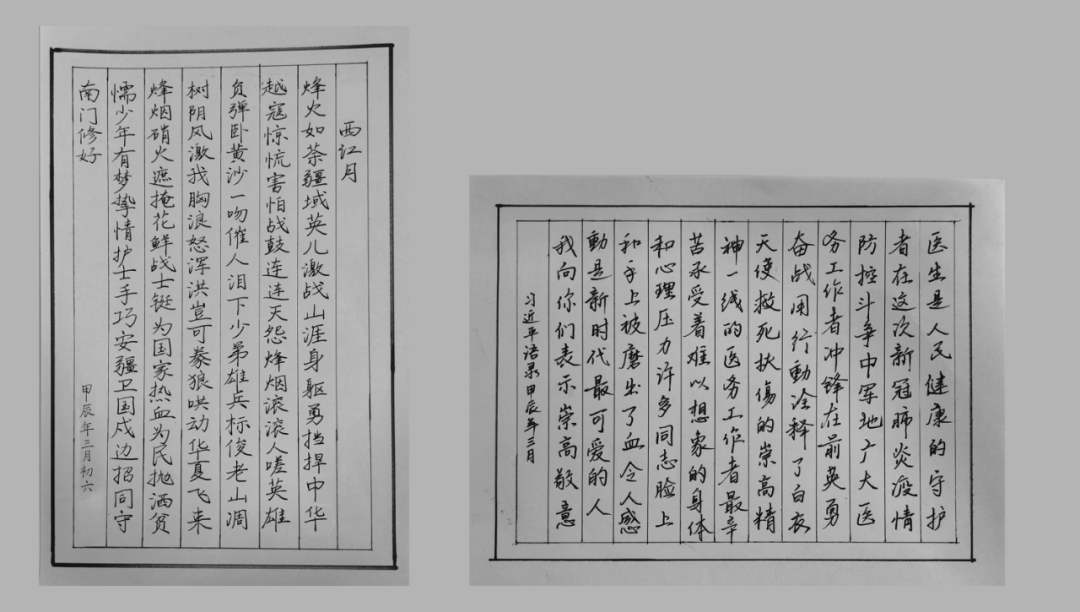 西江月
烽火如荼疆域英儿激战山涯身躯勇挡捍中华
越寇惊慌害怕战鼓连连天怨烽烟滚滚人嗟英雄
负弹卧黄沙一吻催人泪下少弟雄兵标俊老山凋
树阴风激我胸浪怒浑洪岂可豢狼哄动华夏飞来
烽烟硝火遮掩花鲜战士铤为国家热血为民抛洒贫
懦少年有梦挚情护士手巧安疆卫国戍边招同守
南门修好
甲辰年三月初六
医生是人民健康的守护
者在这次新冠肺炎疫情
防控斗争中军地广大医
务工作者冲锋在前英勇
奋战用行動诠释了白衣
天使救死扶傷的崇高精
神一线的医务工作者最辛
苦承受着难以想象的身体
和心理压力许多同志脸上
和手上被磨出了血令人感
動是新时代最可爱的人
我向你们表示崇高敬意
习近平语录甲辰年三月